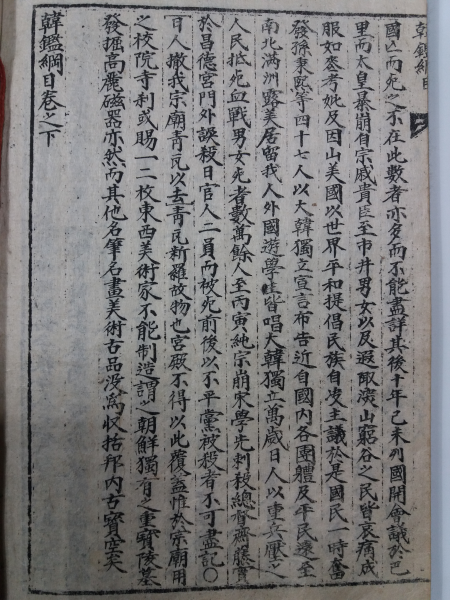 韓鑑綱目
國亡而死之不在此數者亦多而不能盡詳其後十年己未列國開會議於巴
里而太皇暴崩自宗戚貴臣至市井男女以及遐陬深山窮谷之民皆哀痛成
服如喪考妣及因山美國以世界平和提倡民族自决主議於是國民一時奮
發孫秉熙等四十七人以大韓獨立宣言布告近自國內各團體及平民遠至
南北滿洲露美居留我人外國遊學生皆唱大韓獨立萬歲日人以重兵壓之
人民抵死血戰男女死者數萬餘人至丙寅純宗崩宋學先刺殺總督齋藤實
於昌德宮門外誤殺日官人二員而被死前後以不平黨被殺者不可盡記〇
日人撤我宗廟青瓦以去青瓦新羅故物也宮殿不得以此覆盖惟於宗廟用
之校院寺刹或賜一二枚東西美術家不能制造謂之朝鮮獨有之重寶陵墓
發掘高麗磁器亦然而其他名筆名畫美術古品沒爲収括邦內古寶空矣
韓鑑綱目卷之下